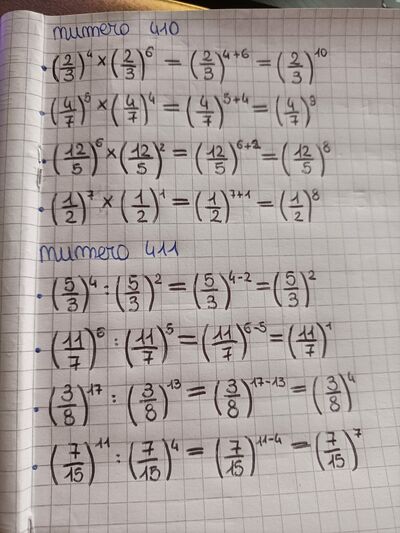 numero 410
(2/3)^4 × (2/3)^6 = (2/3)^4+6 = (2/3)^10
(4/7)^5 × (4/7)^4 = (4/7)^5+4 = (4/7)^9
(12/5)^6 × (12/5)^2 = (12/5)^6+2 = (12/5)^8
(1/2)^7 × (1/2)^1 = (1/2)^7+1 = (1/2)^8
numero 411
(5/3)^4 : (5/3)^2 = (5/3)^4-2 = (5/3)^2
(11/7)^6 : (11/7)^5 = (11/7)^6-5 = (11/7)^1
(3/8)^17 : (3/8)^13 = (3/8)^17-13 = (3/8)^4
(7/15)^11 : (7/15)^4 = (7/15)^11-4 = (7/15)^7